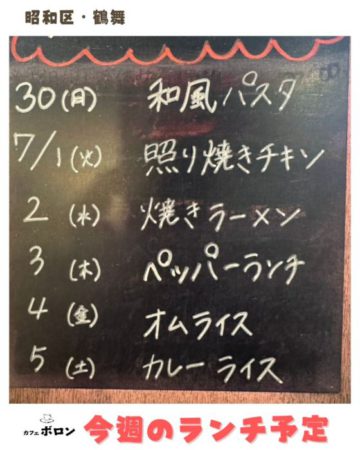 昭和区・鶴舞
30(月) 和風パスタ
7/1(火) 照り焼きチキン
2(水) 焼きラーメン
3(木) ペッパーランチ
4(金) オムライス
5(土) カレーライス
カフェ ボロン 今週のランチ予定